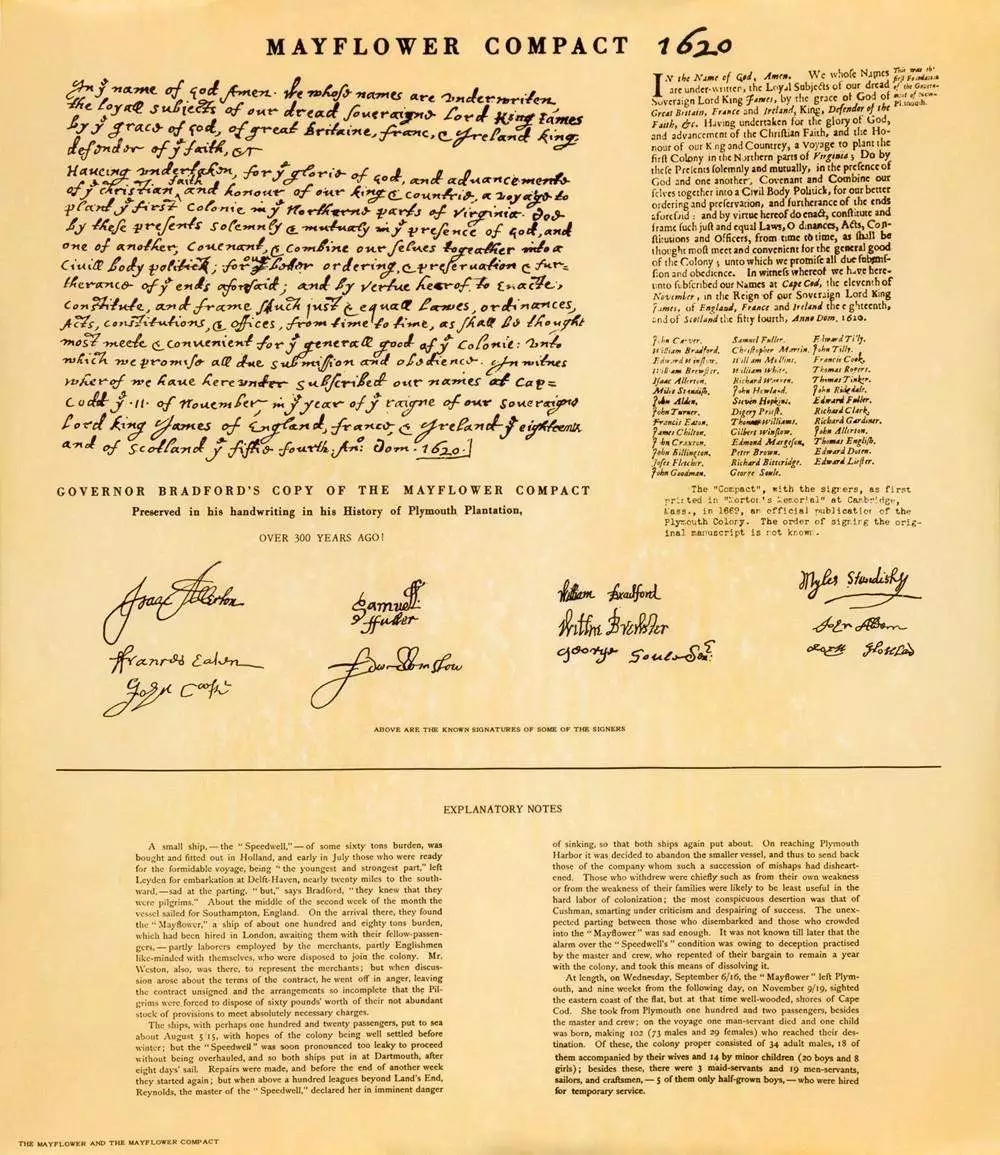 MAYFLOWER COMPACT 1620
In yͤ name of god Amen. We whose names are underwriten,
the loyall subjects of our dread soveraigne Lord King James
by yͤ grace of god, of great Britaine, franc, & Ireland king,
defender of yͤ faith, &c
Haveing undertaken, for yͤ glorie of god, and advancemente
of yͤ christian faith and honour of our king & countrie, a voyage to
plant yͤ first colonie in yͤ Northerne parts of Virginia. Doe
by these presents solemnly & mutualy in yͤ presence of god, and
one of another, covenant, & combine our selves togeather into a
Civill body politick; for our better ordering, & preservation & fur=
therance of yͤ ends aforesaid; and by vertue hearof to enacte,
constitute, and frame shuch just & equall lawes, ordinances,
Acts, constitutions, & offices, from time to time, as shall be thought
most meete & convenient for yͤ generall good of yͤ Colonie: unto
which we promise all due submission and obedience. In witnes
wherof we have hereunder subscribed our names at Cap=
Codd yͤ .11. of November, in yͤ year of yͤ raigne of our soveraigne
Lord king James of England, france, & Ireland yͤ eighteenth
and of Scotland yͤ fiftie fourth. An: Dom. 1620.
IN the Name of God, Amen. We whoſe Names
are under-written, the Loyal Subjects of our dread
Soveraign Lord King James, by the grace of God of
Great Britain, France and Ireland, King, Defender of the
Faith, &c. Having undertaken for the glory of God,
and advancement of the Chriſtian Faith, and the Ho-
nour of our King and Countrey, a Voyage to plant the
firſt Colony in the Northern parts of Virginia; Do by
theſe Preſents ſolemnly and mutually, in the preſence of
God and one another, Covenant and Combine our
ſelves together into a Civil Body Politick, for our better
ordering and preſervation, and furtherance of the ends
aforeſaid: and by virtue hereof do enact, conſtitute and
frame ſuch juſt and equal Laws, O dinances, Acts, Con-
ſtitutions and Officers, from time to time, as ſhall be
thought moſt meet and convenient for the general good
of the Colony; unto which we promiſe all due ſubmiſ-
ſion and obedience. In witneſs whereof we have here-
unto ſubſcribed our Names at Cape Cod, the eleventh of
November, in the Reign of our Soveraign Lord King
James, of England, France and Ireland the eighteenth,
and of Scotland the fifty fourth, Anno Dom. 1620.
This was the
firſt Foundation
of the Govern-
ment of New-
Plimouth.
John Carver. Samuel Fuller. Edward Tilly.
William Bradford. Chriſtopher Martin. John Tilly.
Edward Winſlow. William Mullins. Francis Cook,
William Brewſter. William White. Thomas Rogers.
Iſaac Allerton. Richard Warren. Thomas Tinker.
Miles Standiſh, John Howland. John Ridgdale.
John Alden, Steven Hopkins. Edward Fuller.
John Turner. Digery Prieſt. Richard Clark,
Francis Eaton. Thomas Williams. Richard Gardiner.
James Chilton. Gilbert Winſlow. John Allerton.
John Craxton. Edmond Margeſon. Thomas Engliſh.
John Billington. Peter Brown. Edward Doten.
Joſes Fletcher. Richard Bitteridge. Edward Lieſter.
John Goodman. George Soule.
GOVERNOR BRADFORD'S COPY OF THE MAYFLOWER COMPACT
Preserved in his handwriting in his History of Plymouth Plantation,
OVER 300 YEARS AGO!
The "Compact", with the signers, as first
printed in "Morton's Memorial" at Cambridge,
Mass., in 1669, an official publication of the
Plymouth Colony. The order of signing the orig-
inal manuscript is not known.
Isaac Allerton
Samuell
ffuller
William Bradford
Willm Brewster
George Soule Senʳ
Myles Standish
John Alden
Frances Eaton
John Cooke
Edw Winslow
ABOVE ARE THE KNOWN SIGNATURES OF SOME OF THE SIGNERS
EXPLANATORY NOTES
A small ship,—the "Speedwell,"—of some sixty tons burden, was
bought and fitted out in Holland, and early in July those who were ready
for the formidable voyage, being "the youngest and strongest part," left
Leyden for embarkation at Delft-Haven, nearly twenty miles to the south-
ward,—sad at the parting, "but," says Bradford, "they knew that they
were pilgrims." About the middle of the second week of the month the
vessel sailed for Southampton, England. On the arrival there, they found
the "Mayflower," a ship of about one hundred and eighty tons burden,
which had been hired in London, awaiting them with their fellow-passen-
gers,—partly laborers employed by the merchants, partly Englishmen
like-minded with themselves, who were disposed to join the colony. Mr.
Weston, also, was there, to represent the merchants; but when discus-
sion arose about the terms of the contract, he went off in anger, leaving
the contract unsigned and the arrangements so incomplete that the Pil-
grims were forced to dispose of sixty pounds' worth of their not abundant
stock of provisions to meet absolutely necessary charges.
The ships, with perhaps one hundred and twenty passengers, put to sea
about August 5/15, with hopes of the colony being well settled before
winter; but the "Speedwell" was soon pronounced too leaky to proceed
without being overhauled, and so both ships put in at Dartmouth, after
eight days' sail. Repairs were made, and before the end of another week
they started again; but when above a hundred leagues beyond Land's End,
Reynolds, the master of the "Speedwell," declared her in imminent danger
of sinking, so that both ships again put about. On reaching Plymouth
Harbor it was decided to abandon the smaller vessel, and thus to send back
those of the company whom such a succession of mishaps had disheart-
ened. Those who withdrew were chiefly such as from their own weakness
or from the weakness of their families were likely to be least useful in the
hard labor of colonization; the most conspicuous desertion was that of
Cushman, smarting under criticism and despairing of success. The unex-
pected parting between those who disembarked and those who crowded
into the "Mayflower" was sad enough. It was not known till later that the
alarm over the "Speedwell's" condition was owing to deception practised
by the master and crew, who repented of their bargain to remain a year
with the colony, and took this means of dissolving it.
At length, on Wednesday, September 6/16, the "Mayflower" left Plym-
outh, and nine weeks from the following day, on November 9/19, sighted
the eastern coast of the flat, but at that time well-wooded, shores of Cape
Cod. She took from Plymouth one hundred and two passengers, besides
the master and crew; on the voyage one man-servant died and one child
was born, making 102 (73 males and 29 females) who reached their des-
tination. Of these, the colony proper consisted of 34 adult males, 18 of
them accompanied by their wives and 14 by minor children (20 boys and 8
girls); besides these, there were 3 maid-servants and 19 men-servants,
sailors, and craftsmen,—5 of them only half-grown boys,—who were hired
for temporary service.
THE MAYFLOWER AND THE MAYFLOWER COMPACT